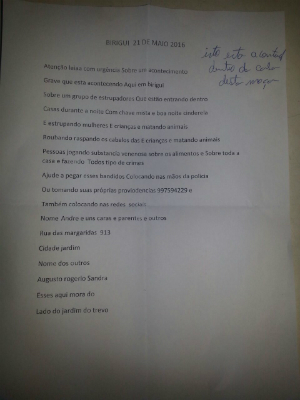 BIRIGUI 21 DE MAIO 2016
isto esta
dentro de
deste
Atenção Com urgência Sobre um acontecimento
Grave que está acontecendo Aqui em Birigui
Sobre um grupo de estrupadores Que estão entrando dentro
Casas durante o noite Com chave mixta e boa noite cinderela
E estrupando mulheres E crianças e matando animais
Roubando raspando os cabelos das E crianças e matando animais
Pessoas jogando substancia venenosa sobre os alimentos e Sobre toda a
casa e fazendo Tudos tipo de crimes
Ajude a pegar esses bandidos Colocando nas mãos da policia
Ou tomando suas próprias providencias 997594229 e
Também colocando nas redes sociais
Nome Andre e uns caras e parentes e outros
Rua das margaridas 913
Cidade jardim
Nome dos outros
Augusto rogerio
Esses aqui mora do
Lado do jardim do trevo